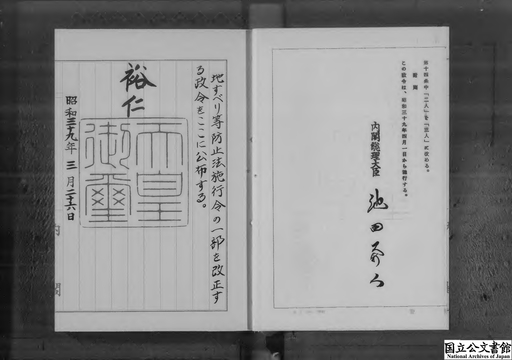 第十四条中「二人」を「三人」に改める。
附則
この政令は、昭和三十九年四月一日から施行する。
内閣総理大臣
池田勇人
地すべり等防止法施行令の一部を改正す
る政令をここに公布する。
裕仁
天皇
御璽
昭和三十九年三月二十六日
内閣
国立公文書館
National Archives of Japan